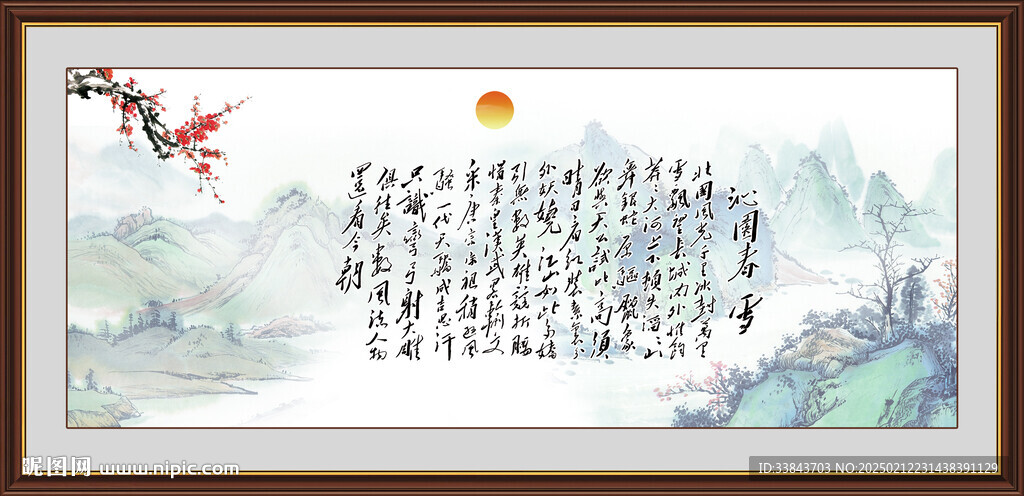 沁園春 雪
北国風光千里冰封萬里
雪飄望長城内外惟餘
莽々大河上下頓失滔々山
舞銀蛇原驅臘象
欲與天公試比高須
晴日看紅裝素裹分
外妖嬈 江山如此多嬌
引無數英雄競折腰
惜秦皇漢武畧輸文
采唐宗宋祖稍遜風
騷一代天驕成吉思汗
只識彎弓射大雕
俱往矣數風流人物
還看今朝
昵图网 www.nipic.com
ID:33843703 NO:20250212231438391129